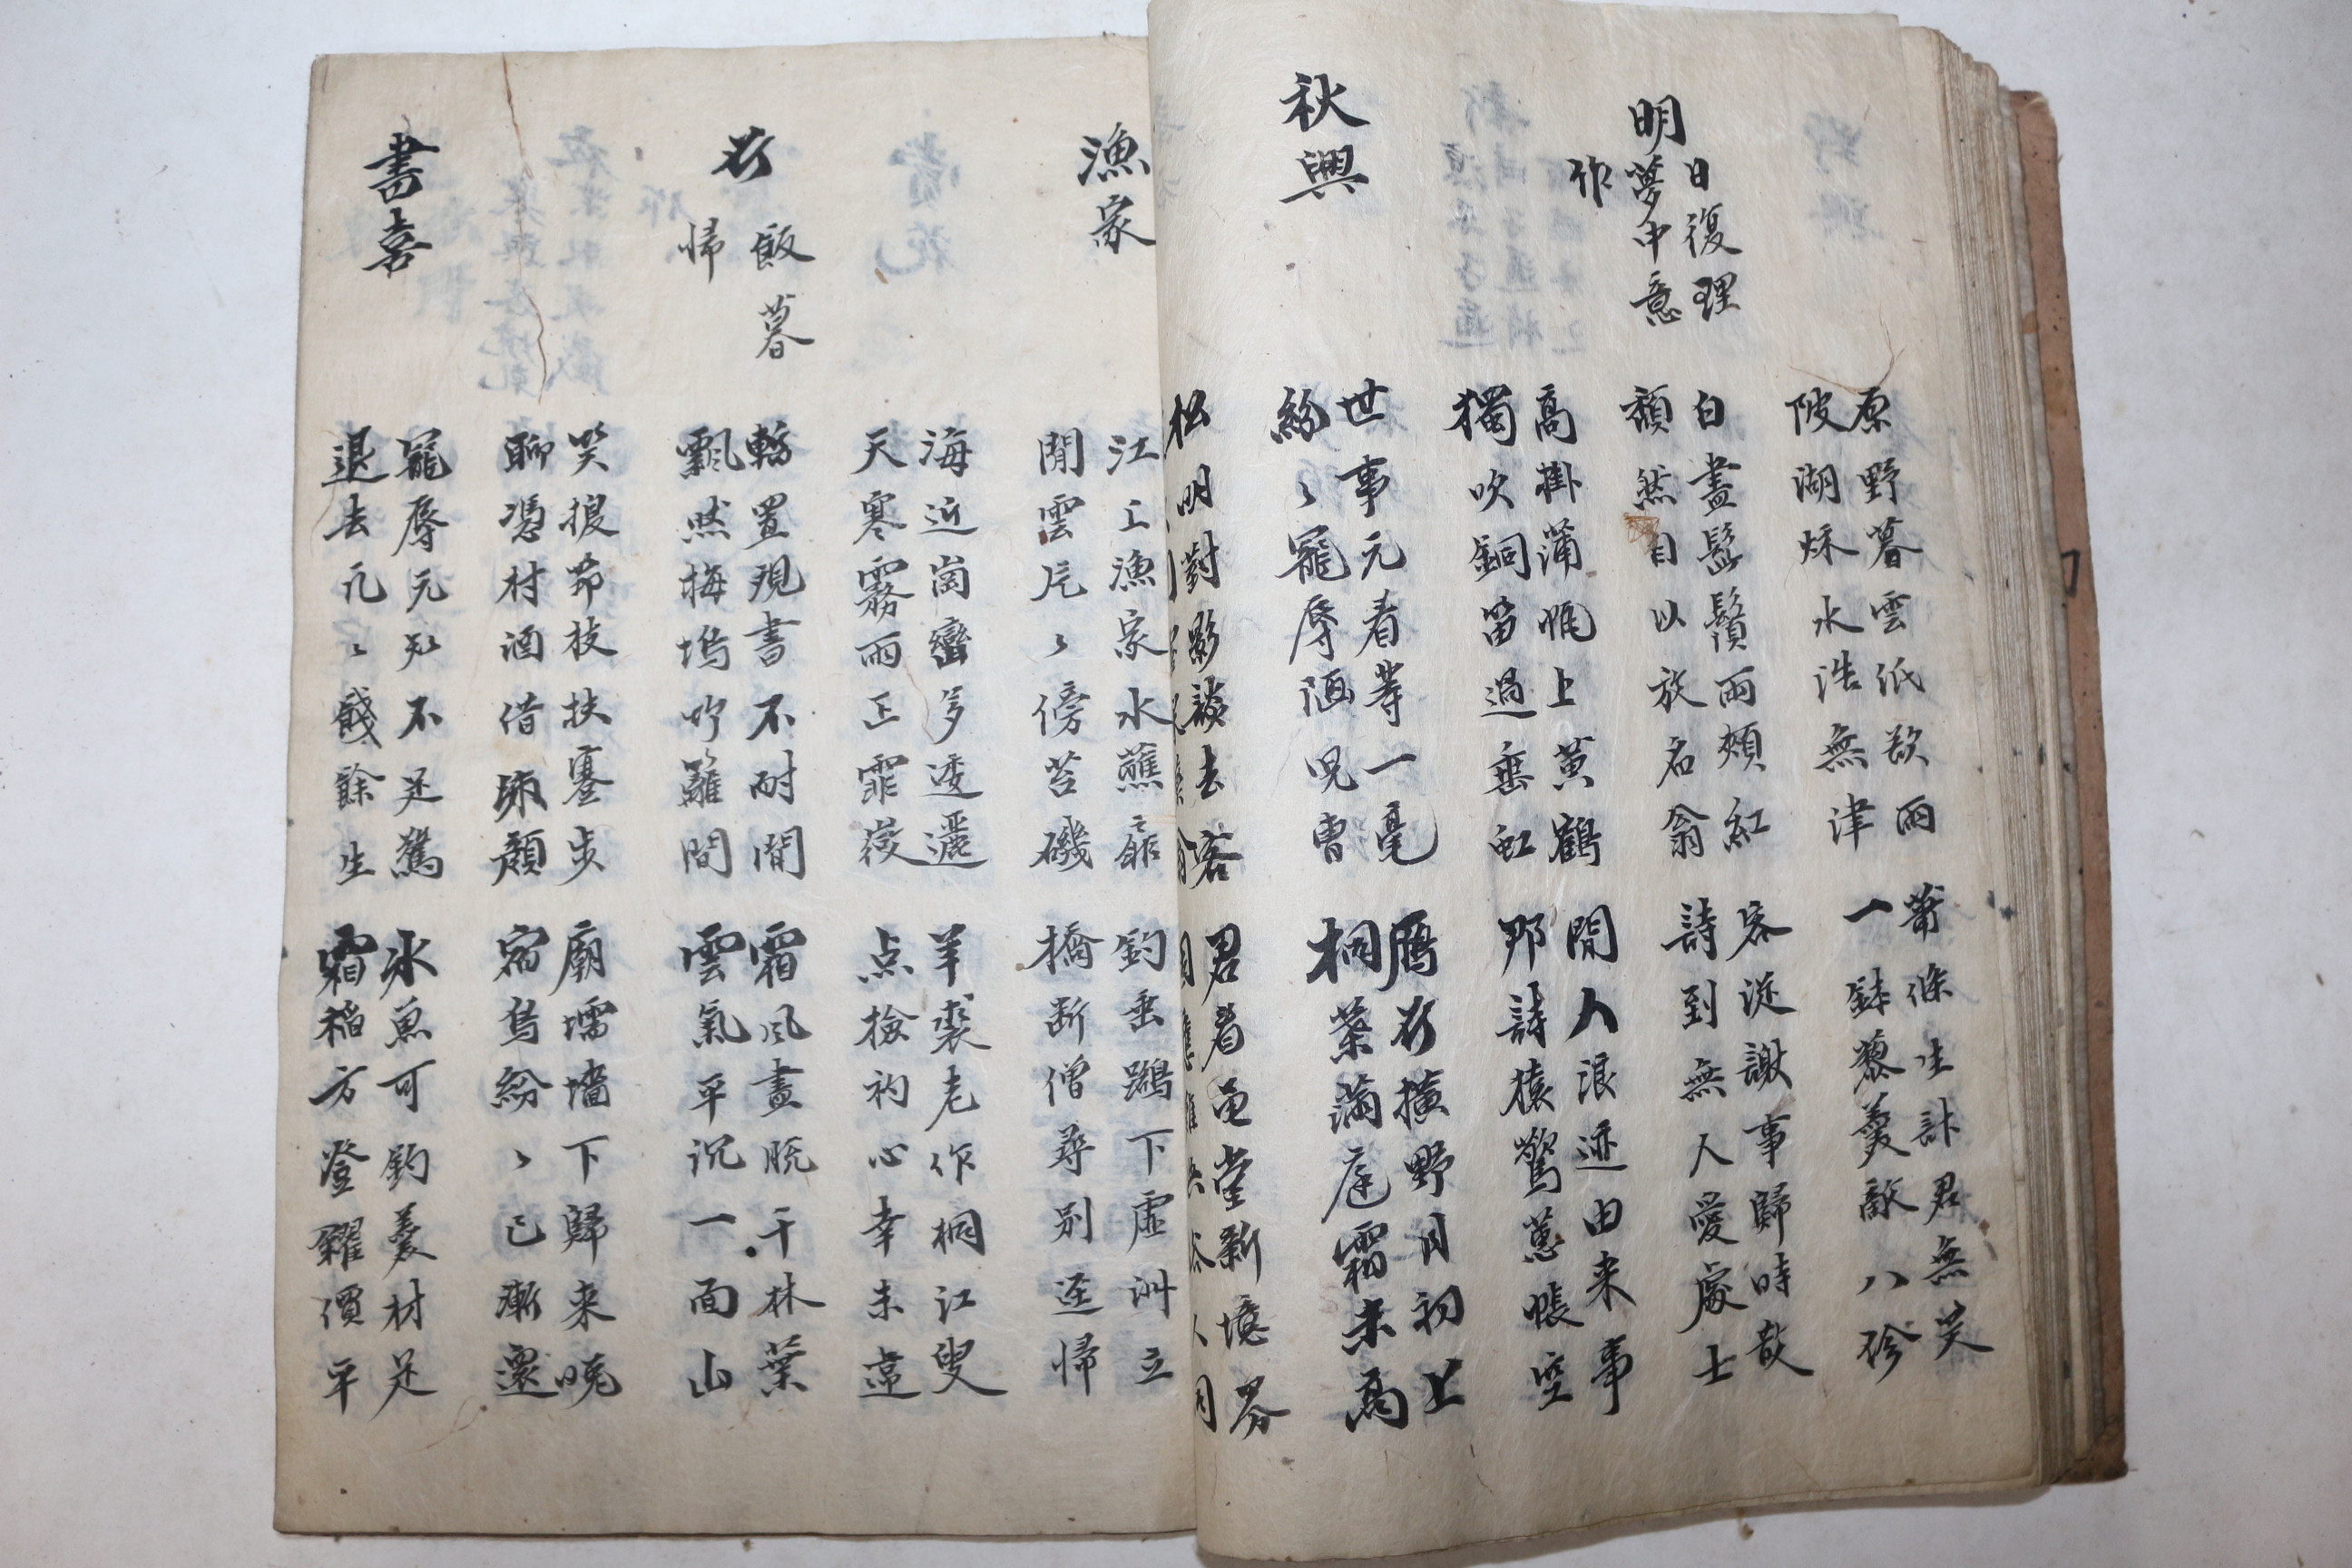 原野暮雲低欲雨
陂湖秋水浩無津
蕭條生計君無笑
一鉢藜羹敵八珍
明日復理夢中意作
白盡髭鬚兩頰紅
頹然自以放名翁
客從謝事歸時散
詩到無人愛處士
高掛蒲帆上黃鶴
獨吹銅笛過垂虹
閒人浪迹由来事
那詩猿驚蕙帳空
秋興
世事元看等一毫
紛〻寵辱洒児曹
鴈行橫野月初上
桐葉滿庭霜未高
松明對影談去客
君看黽堂新境界
漁家
江上漁家水蘸扉
閒雲片〻傍苔磯
釣垂鷁下虛洲立
橋断僧尋別逕帰
海近崗巒多逶邐
天寒霧雨正霏微
羊裘老作桐江叟
点檢初心幸未違
行飯暮帰
輟置硯書不耐閒
飄然梅塢竹籬間
霜風盡脫千林葉
雲氣平沉一面山
笑捉笻枝扶蹇步
聊憑村酒借顔
廟壖墻下歸来晚
宿鳥紛〻已漸還
書喜
寵辱元知不足驚
退去凡〻餞餘生
氷魚可釣羹材足
霜稲方登糴價平